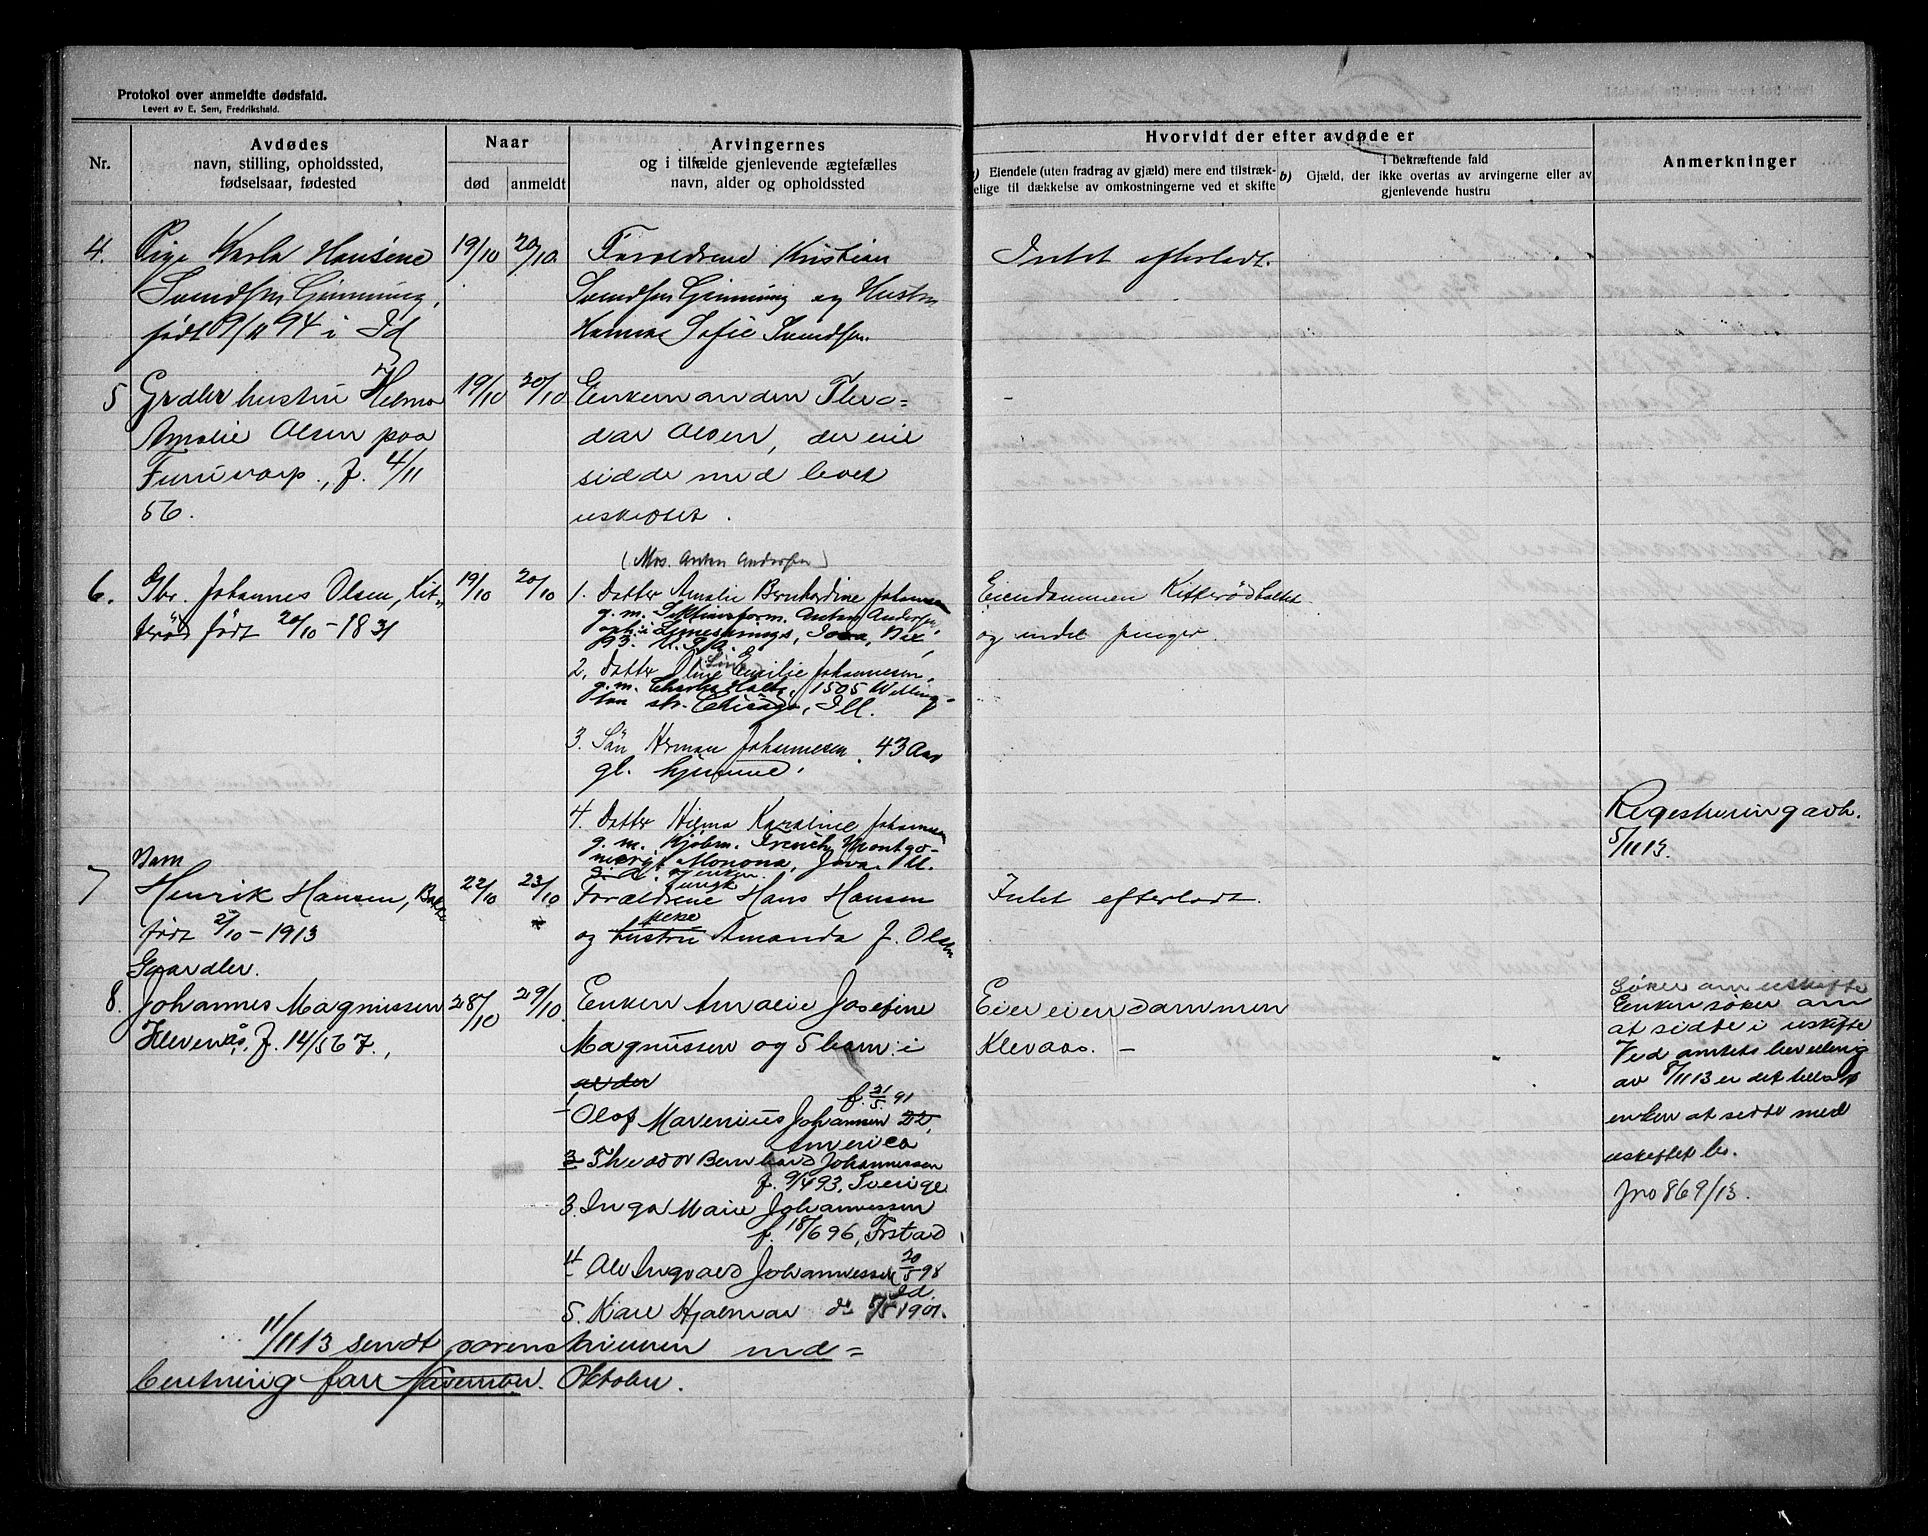 Protokol over anmeldte dødsfald.
Levert av E. Sem, Fredrikshald.
Nr.
Avdødes
navn, stilling, opholdssted,
fødselsaar, fødested
Naar
død
anmeldt
Arvingernes
og i tilfælde gjenlevende ægtefælles
navn, alder og opholdssted
Hvorvidt der efter avdøde er
a) Eiendele (uten fradrag av gjæld) mere end tilstræk-
kelige til dækkelse av omkostningerne ved et skifte
i bekræftende fald
b) Gjæld, der ikke overtas av arvingerne eller av
gjenlevende hustru
Anmerkninger
4. Pige Karla Hansine
Svendsen Gimming,
født 9/11 94 i Id
19/10 20/10.
Forældrene Kristian
Svendsen Gimming og Hustru
Hanna Sofie Svendsen.
Intet efterladt.
5 Grdbr hustru Helma
Amalie Olsen paa
f. 4/11
56.
19/10 20/10
Enkemanden Theo-
dor Olsen, der vil
sidde med boet
uskiftet.
-
6. Gbr. Johannes Olsen, Kit-
terød født 20/10 - 1831
19/10 20/10
(Mrs. Anton Andersen)
1. Datter Amalie Bernhardine Johannsen
g. m. Sektionsform. Anton Andersen,
Iowa, Box
93. U.S.A.
2. Datter Oline Emilie Johannesen,
g. m. Charles 1505 Welling-
ton str. Chicago, Ill.
3. Sön Herman Johannesen. 43 Aar
gl. hjemme.
4. Datter Hilma Karoline Johannsen
g. m. Kjøbm. French Montgo-
mery, Monona, Iova. Ill.
Eiendommen Kitterödholtet
og endel penger.
Registrering avh.
5/11 13.
7 Barn
Henrik Hansen,
født 2/10 - 1913
22/10 23/10
Forældrene Hans Hansen
og hustru pike Amanda J. Olsen
Intet efterladt.
Gaardbr.
8. Johannes Magnussen
Klevenås, f. 14/5 67.,
28/10 29/10.
Enken Amalie Josefine
Magnussen og 5 barn: i
alder
1 f. 21/5 91
- Olaf Marenius Johannsen 22,
America
2 Theodor Bernhard Johannessen
f. 9/4 93, Sverige
3. Inga Marie Johannessen
f. 18/6 96, Frstad
4 Alv Ingvald Johannessen 20/5 98
Id.
5. Karl Hjalmar do 5/5 1901.
Eier eiendommen
Klevaas. -
Søker om uskifte
Enken søker om
at sidte i uskifte
Ved amtets bevilling
av 8/11 13 er det tillatt
enken at sidte med
uskiftet bo.
Jno 869/13.
11/11 13 sendt sorenskriveren ind-
beretning for November. Oktober.